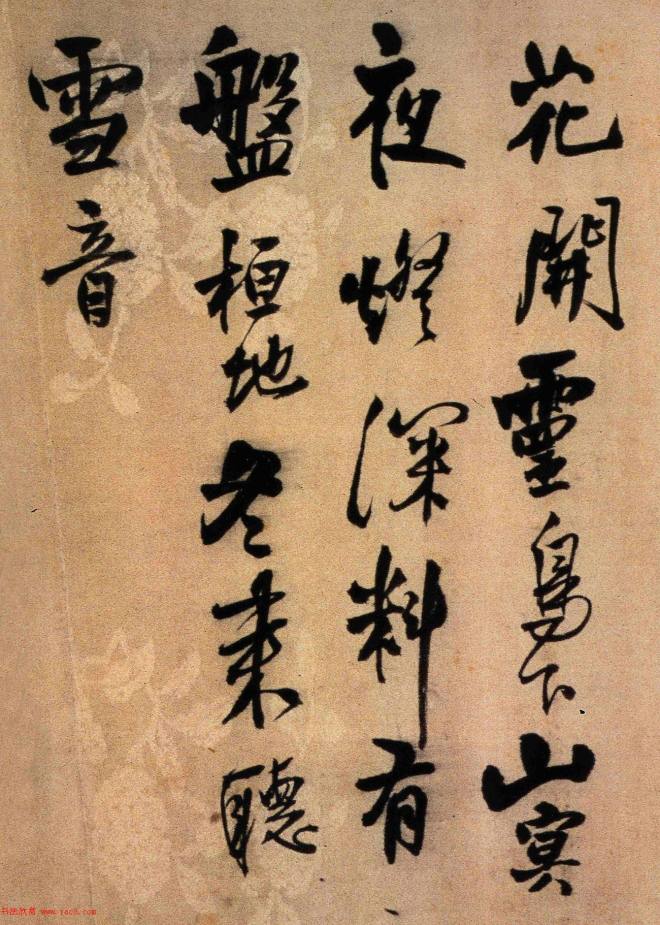 花開靈鳥下山冥
夜燈深料有
盤桓地冬來聽
雪音
书法欣赏 www.yac8.com